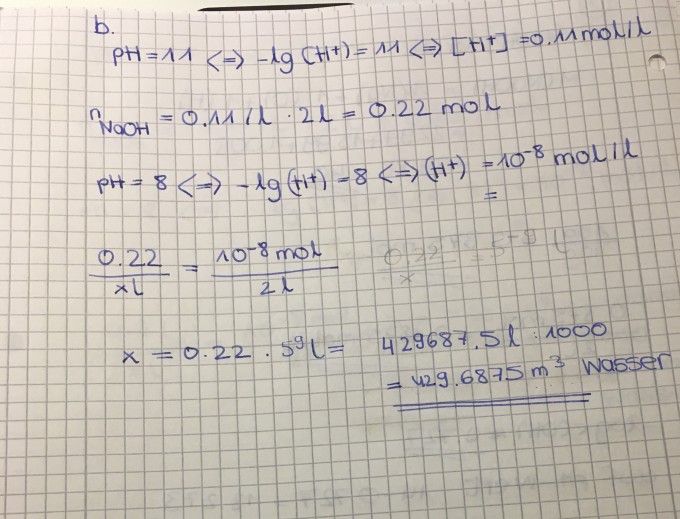 b.
pH = 11 <=> -lg (H+) = 11 <=> [H+] = 0.11 mol/l
nNaOH = 0.11 /l · 2l = 0.22 mol
pH = 8 <=> -lg (H+) = 8 <=> (H+) = 10^-8 mol/l
=
0.22 / xl = 10^-8 mol / 2l
0.22 / x = 5^-9
x = 0.22 · 5^9 l = 429687.5 l : 1000
= 429.6875 m³ Wasser